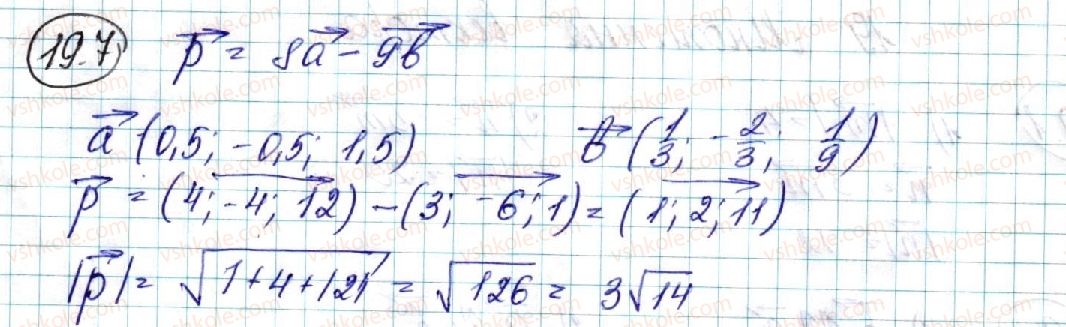 19.7 p⃗ = 8a⃗ - 9b⃗
a⃗ (0,5; -0,5; 1,5) b⃗ (1/3; -2/3; 1/9)
p⃗ = (4; -4; 12) - (3; -6; 1) = (1; 2; 11)
|p⃗| = √(1+4+121) = √126 = 3√14